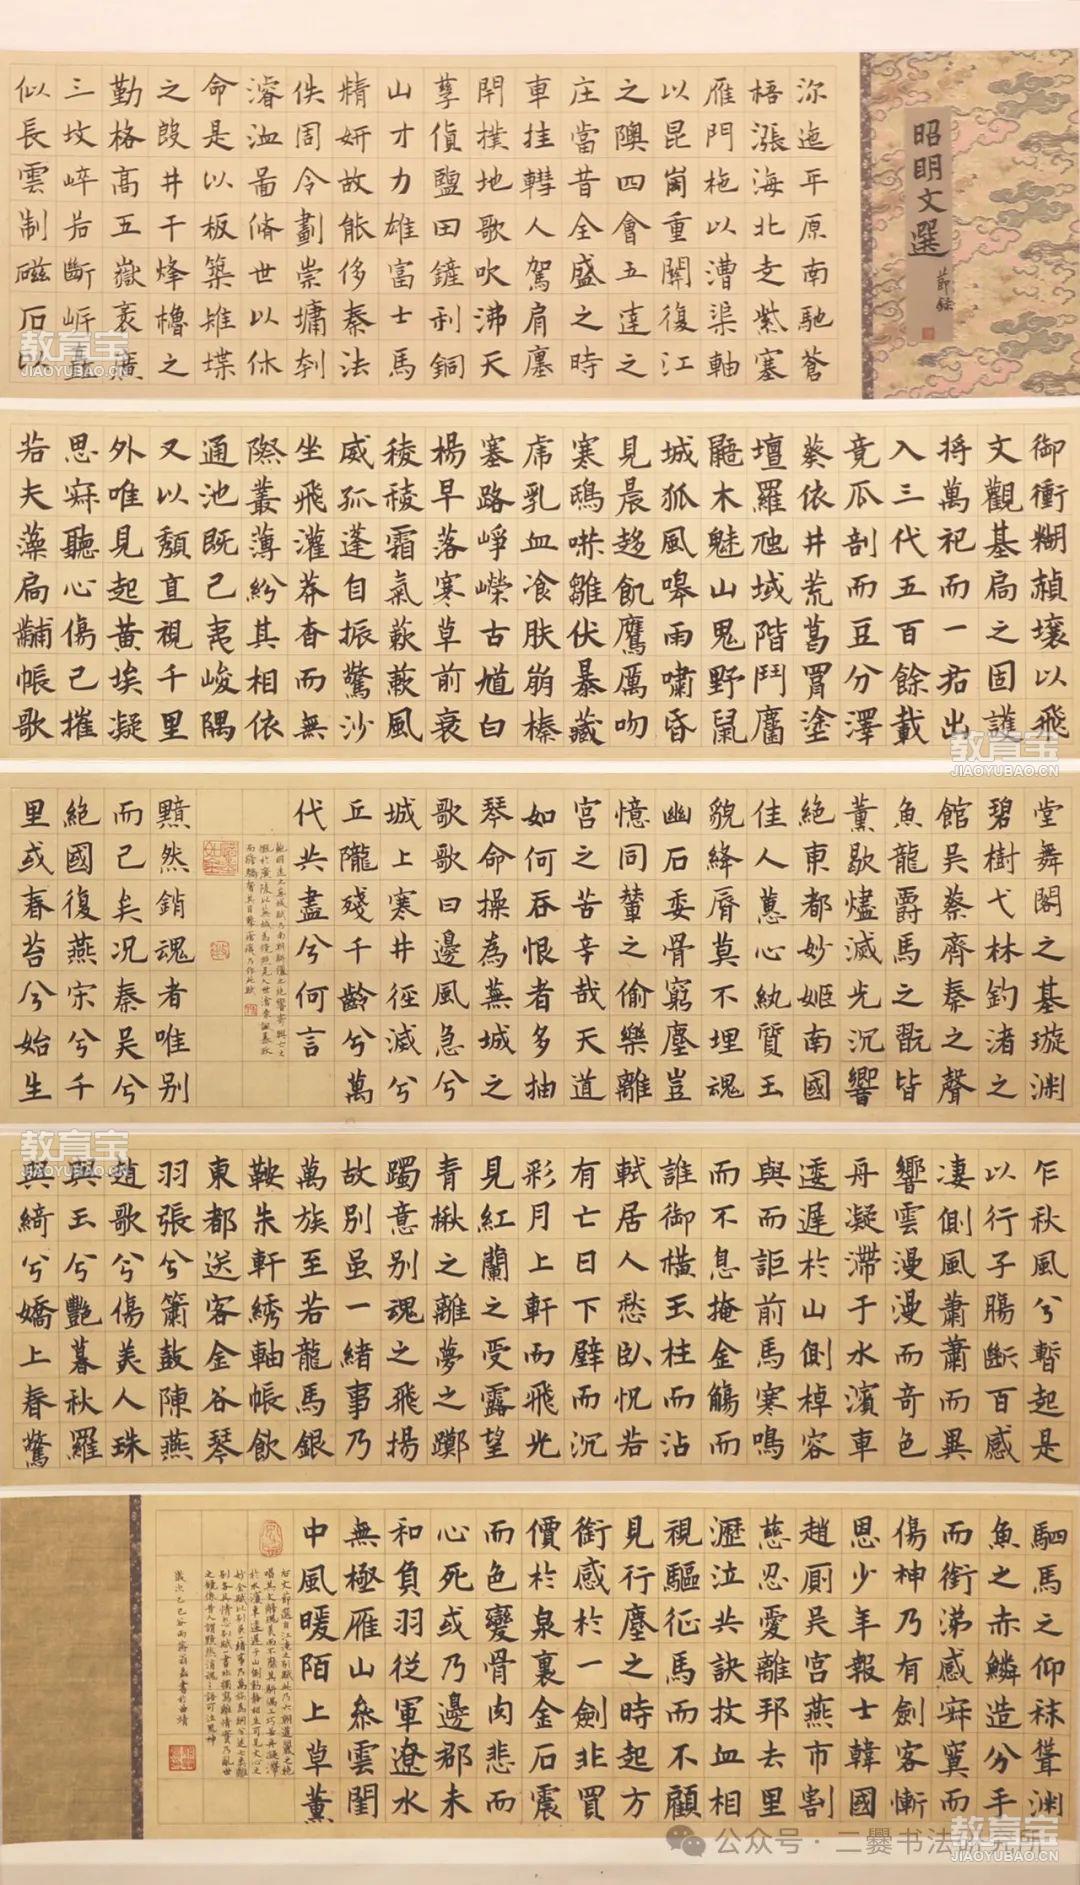 昭明文選
節錄
沵迆平原南馳蒼
梧漲海北走紫塞
雁門柂以漕渠軸
以昆崗重關復江
之隩四會五達之
庄當昔全盛之時
車挂轊人駕肩廛
閈撲地歌吹沸天
孳貨鹽田鏟利銅
山才力雄富士馬
精妍故能侈秦法
佚周令劃崇墉刳
濬洫啚脩世以休
命是以板築雉堞
之殷井干烽櫓之
勤格高五嶽袤廣
三坟崪若斷岸矗
似長雲制磁石以
御衝糊赬壤以飛
文觀基扃之固護
將萬祀而一君出
入三代五百餘載
竟瓜剖而豆分澤
葵依井荒葛罥塗
壇羅虺蜮階鬥麕
鼯木魅山鬼野鼠
城狐風嗥雨嘯昏
見晨趍飢鷹厲吻
寒鴟嚇雛伏暴藏
虎乳血飡膚崩榛
塞路崢嶸古馗白
楊早落寒草前衰
稜稜霜氣蔌蔌風
威孤蓬自振驚沙
坐飛灌莽杳而無
際叢薄紛其相依
通池既已夷峻隅
又以頹直視千里
外唯見起黄埃凝
思寂聽心傷已摧
若夫藻扃黼帳歌
堂舞閣之基璇渊
碧樹弋林釣渚之
館吴蔡齊秦之聲
魚龍爵馬之翫皆
薰歇燼滅光沉響
絶東都妙姬南國
佳人蕙心紈質玉
貌絳脣莫不埋魂
幽石委骨窮塵豈
憶同輦之偷樂離
宫之苦辛哉天道
如何吞恨者多抽
琴命操為蕪城之
歌歌曰邊風急兮
城上寒井徑滅兮
丘隴殘千齡兮萬
代共盡兮何言
黯然銷魂者唯别
而已矣况秦吴兮
絶國復燕宋兮千
里或春苔兮始生
乍秋風兮暫起是
以行子腸斷百感
凄惻風蕭蕭而異
響雲漫漫而奇色
舟凝滯于水濱車
逶遲於山側棹容
與而詎前馬寒鳴
而不息掩金觴而
誰御橫玉柱而沾
軾居人愁卧怳若
有亡日下壁而沉
彩月上軒而飛光
見紅蘭之受露望
青楸之離夢之躑
躅意别魂之飛揚
故别虽一緒事乃
萬族至若龍馬銀
鞍朱軒綉軸帳飲
東都送客金谷琴
羽張兮簫鼓陳燕
趙歌兮傷美人珠
與玉兮艷暮秋羅
與綺兮嬌上春驚
駟馬之仰秣聳渊
魚之赤鱗造分手
而銜涕感寂寞而
傷神乃有劍客慚
恩少年報士韓國
趙厠吴宫燕市割
慈忍愛離邦去里
瀝泣共訣抆血相
視驅征馬而不顧
見行塵之時起方
銜感於一劍非買
價於泉裏金石震
而色變骨肉悲而
心死或乃邊郡未
和負羽從軍遼水
無極雁山叅雲閨
中風暖陌上草薰
教育宝
JIAOYUBAO.CN
教育宝
JIAOYUBAO.CN
教育宝
JIAOYUBAO.CN
教育宝
JIAOYUBAO.CN
公众号·二爨书法研究所